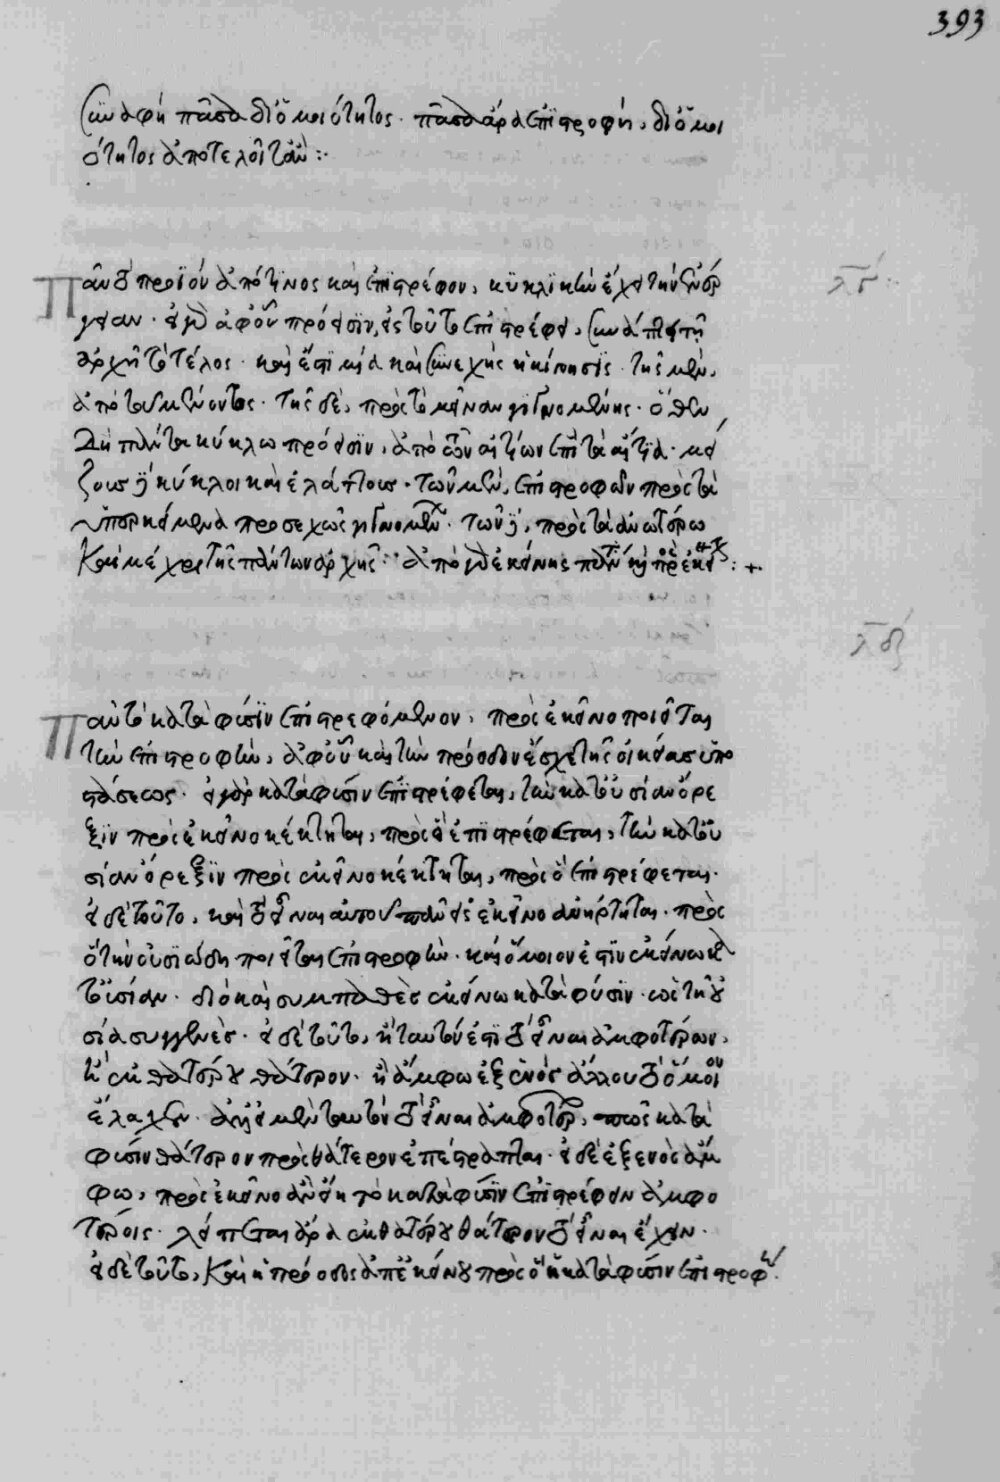 393
συναφὴ πᾶσα δι' ὁμοιότητος. πᾶσα ἄρα ἐπιστροφὴ, δι' ὁμοι
ότητος ἀποτελεῖται:
λγ
Πᾶν τὸ προϊὸν ἀπό τινος καὶ ἐπιστρέφον, κυκλικὴν ἔχει τὴν ἐνέρ
γειαν. εἰ γὰρ ἀφ' οὗ πρόεισιν, εἰς τοῦτο ἐπιστρέφει, συνάπτει τῇ
ἀρχῇ τὸ τέλος. καὶ ἔστι μία καὶ συνεχὴς ἡ κίνησις. τῆς μὲν,
ἀπὸ τοῦ μένοντος. τῆς δὲ, πρὸς τὸ μεῖναν γιγνομένης. ὅθεν
δὴ πάντα κύκλω πρόεισιν, ἀπὸ τῶν αἰτίων ἐπὶ τὰ αἴτια. μεί
ζους δὲ κύκλοι καὶ ἐλάττους. τῶν μὲν, ἐπιστροφῶν πρὸς τὰ
ὑπερκείμενα προσεχῶς γιγνομένων. τῶν δὲ, πρὸς τὰ ἀνωτέρω
καὶ μέχρι τῆς πάντων ἀρχῆς: ἀπὸ γὰρ ἐκείνης πάντα καὶ πρὸς ἐκείνην:+
λδ
Πᾶν τὸ κατὰ φύσιν ἐπιστρεφόμενον, πρὸς ἐκεῖνο ποιεῖται
τὴν ἐπιστροφὴν, ἀφ' οὗ καὶ τὴν πρόοδον ἔσχε τῆς οἰκείας ὑπο
στάσεως. εἰ γὰρ κατὰ φύσιν ἐπιστρέφεται, τὴν κατ' οὐσίαν ὄρε
ξιν πρὸς ἐκεῖνο κέκτηται, πρὸς ὃ ἐπιστρέφεται, τὴν κατ' οὐ
σίαν ὄρεξιν πρὸς ἐκεῖνο κέκτηται, πρὸς ὃ ἐπιστρέφεται.
εἰ δὲ τοῦτο, καὶ τὸ εἶναι αὐτοῦ πᾶν εἰς ἐκεῖνο ἀνήρτηται. πρὸς
ὃ τὴν οὐσιώδη ποιεῖται ἐπιστροφὴν. καὶ ὅμοιον ἐστὶν ἐκείνω κατ'
οὐσίαν. διὸ καὶ συμπαθὲς ἐκείνω κατὰ φύσιν. ὡς τῇ οὐ
σία συγγενὲς. εἰ δὲ τοῦτο, ἢ ταυτόν ἐστι τὸ εἶναι ἀμφοτέρων,
ἢ ἐκ θατέρου θάτερον. ἢ ἄμφω ἐξ ἑνὸς ἄλλου τὸ ὅμοιον
ἔλαχεν. ἀλλ' εἰ μὲν ταυτὸν τὸ εἶναι ἀμφοτέρων, πῶς κατὰ
φύσιν θάτερον πρὸς θάτερον ἐπέστραπται. εἰ δὲ ἐξ ἑνὸς ἄμ
φω, πρὸς ἐκεῖνο ἂν εἴη τὸ κατὰ φύσιν ἐπιστρέφειν ἀμφο
τέροις. λείπεται ἄρα ἐκ θατέρου θάτερον τὸ εἶναι ἔχειν.
εἰ δὲ τοῦτο, καὶ ἡ πρόοδος ἀπ' ἐκείνου πρὸς ὃ ἡ κατὰ φύσιν ἐπιστροφή.